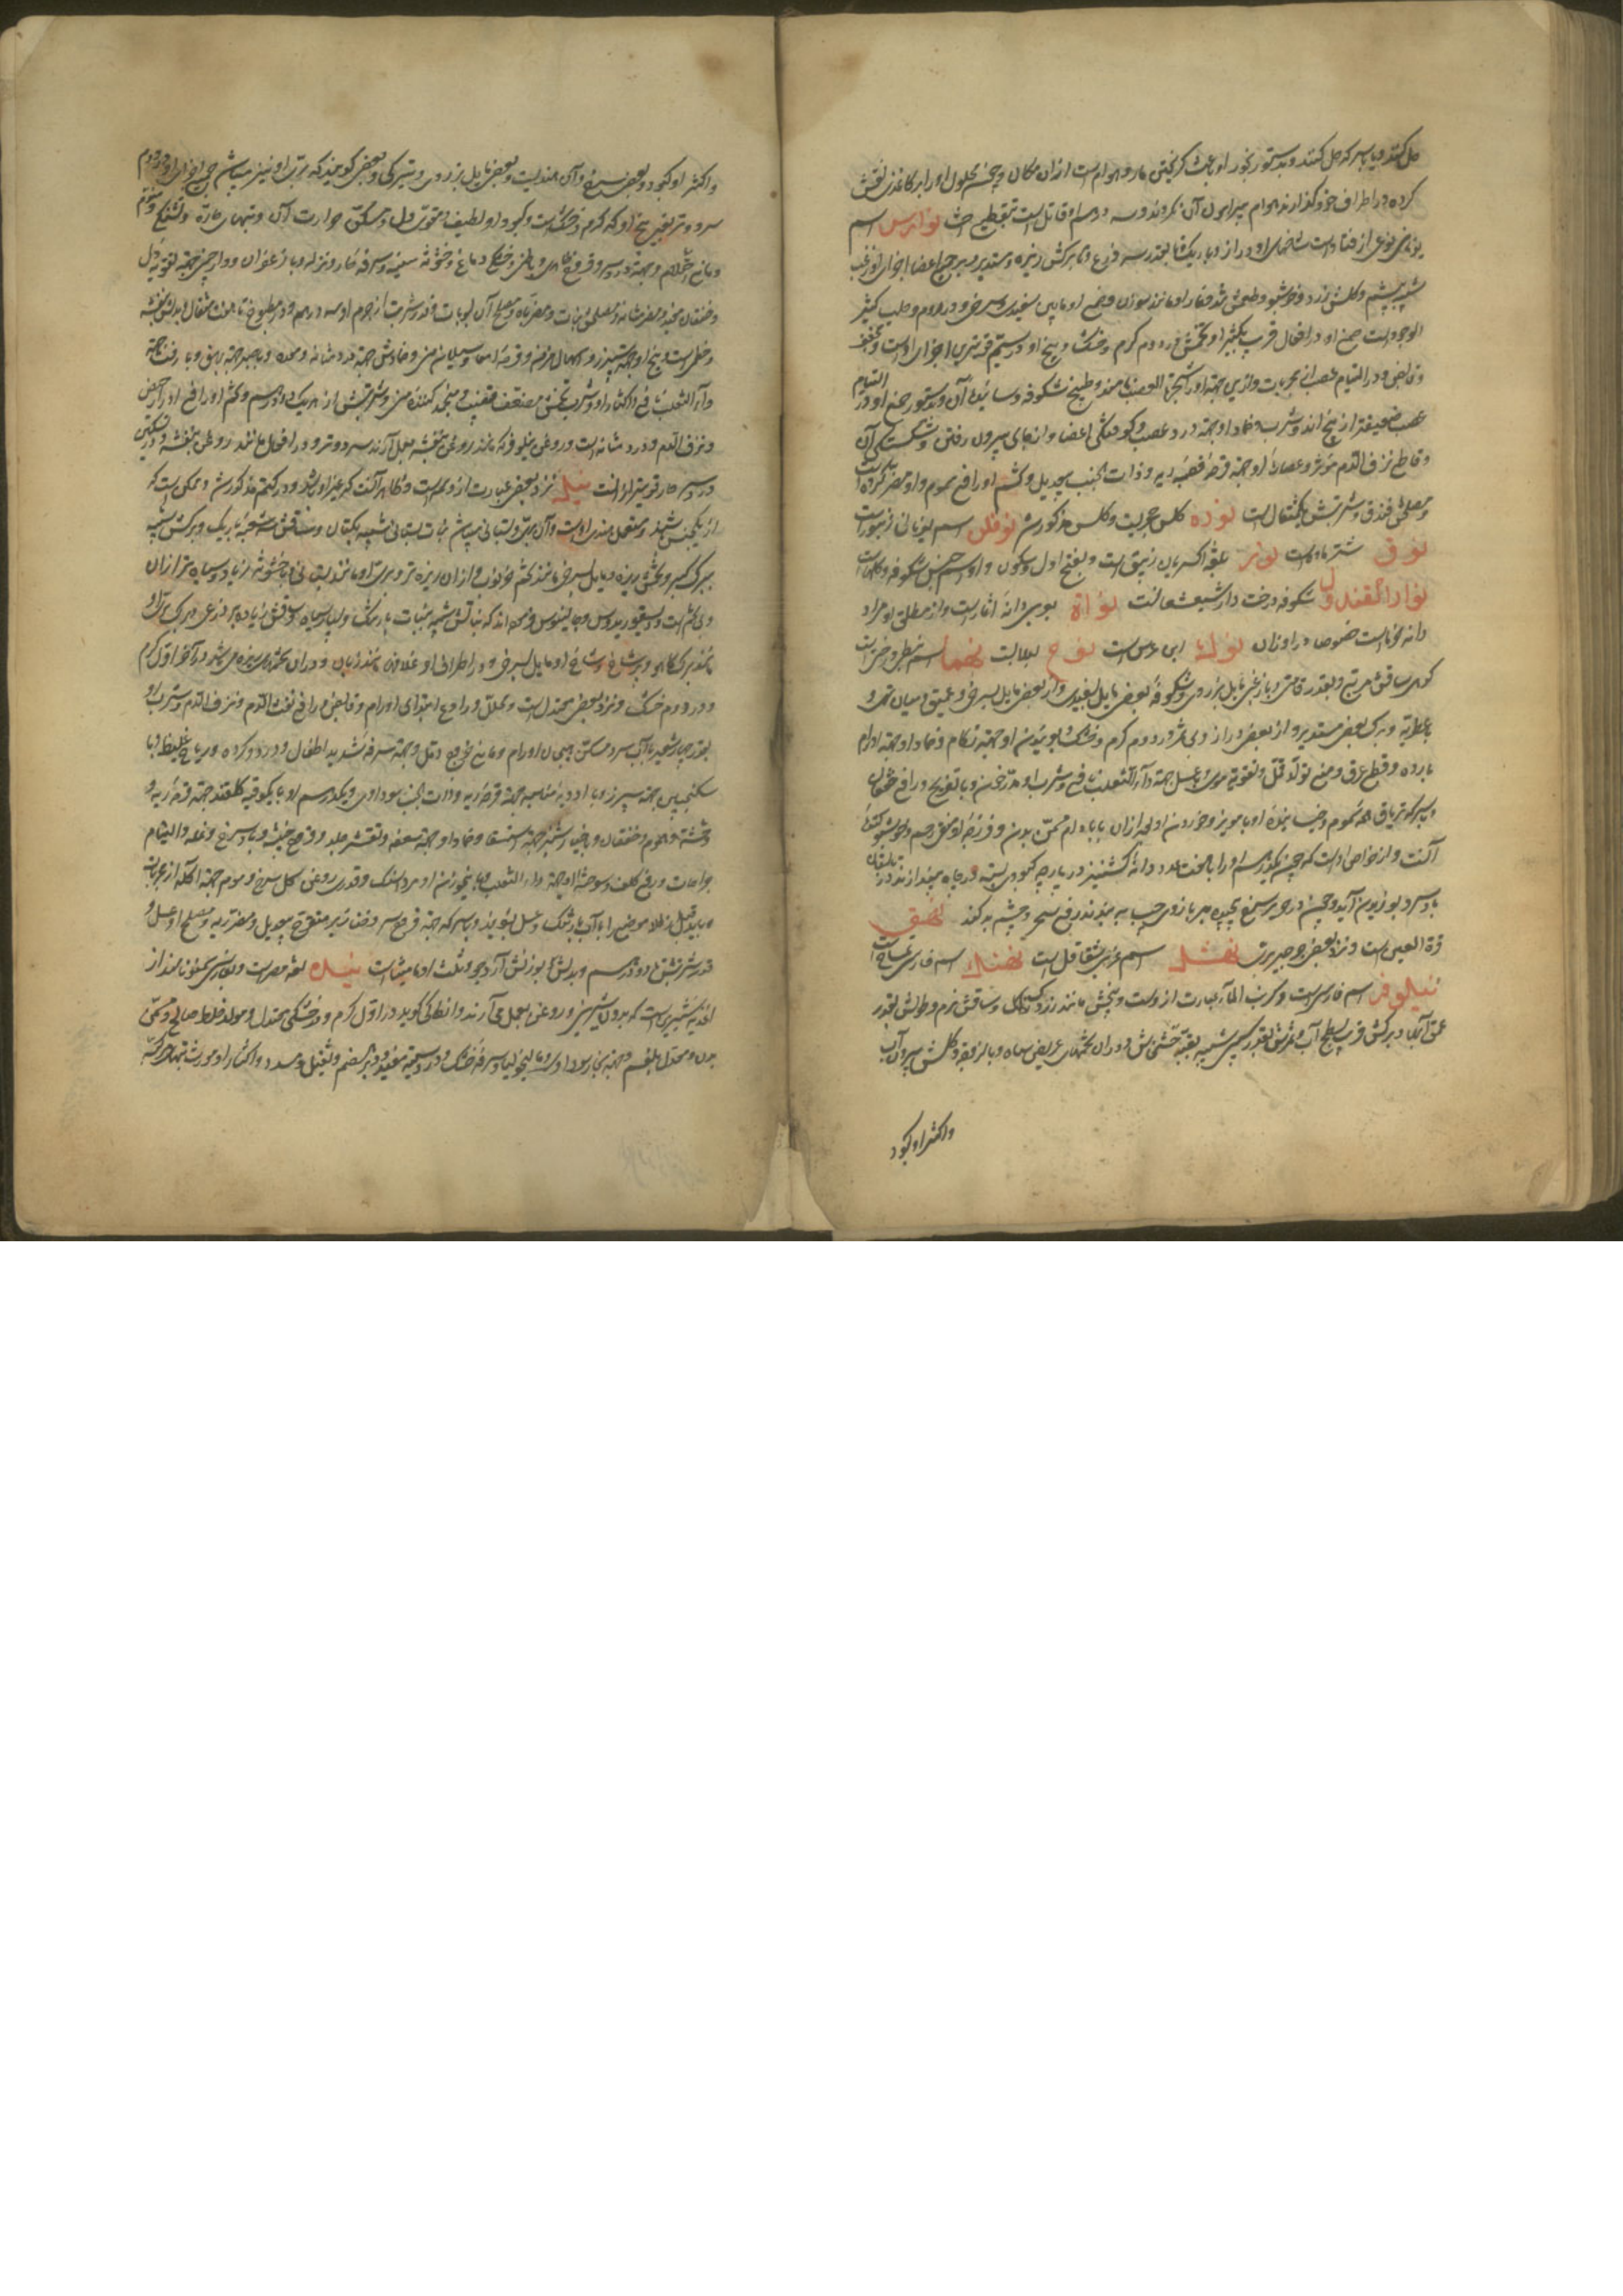 حل کنند و یا بسرکه حل کنند و بدستور بخور او باعث کریختن مار و هوام است از ان مکان و چون محلول او را بر کاغذی نقش
کرده در اطراف خود گذارند هوام پیرامون آن نکردند و سه درم او قاتل است بتقطیع جثه نوارس اسم
یونانی نوعی از قتاد است شاخهای او دراز و باریک تا بقدر سه ذرع و برکش ریزه و مستدیر و بر جمیع اعضا اجزای او زغب
شبیه به پشم و گلش زرد و خوشبو و طعمش تند و
الوجود است صمغ او در افعال قریب بکثیرا و تخمش در دوم گرم و خشک و بیخ او در سیم قوی ترین اجزای او است و مجفف
و قابض و در التیام عصب از مجربات و ازین جهة او را شجرة العصب نامند و طبیخ شکوفه و سائیده آن و بدستور صمغ او در التیام
عصب ضعیفتر از بیخ اند و شرب و ضماد او جهة درد عصب و کوفتکی اعضا و از جای بیرون رفتن و شکستگی آن
و قاطع نزف الدم مؤثر و عصارهٔ او جهة قرحهٔ قصبهٔ ریه و ذات الجنب بیعدیل و کشم او رافع سموم و او مضر گرده است
و مصلحش فندق و شربتش یکمثقال است نوره کلس حجریست و کلس مذکور شد نوفلس اسم یونانی
نوق شتر ماده است نوس بلغة اکسیریان زیبق است و بفتح اول و سکون واو اسم جنس شکوفه و گلهاست
نوار القندول شکوفه درخت دارشیشعانست نواة بعربی دانهٔ اثمار است و از مطلق او مراد
دانه خرما است خصوصا در اوزان نولة ابن عرس است نوح لبلاب است نهما اسم نبطی
کوهی ساقش مربع و بقدر قامتی و با زغب مایل بزردی و شکوفهٔ بعضی مایل بسفیدی و از بعضی مایل بسرخی و عمیق و میان تهی و
با عطریه و برک بعضی مستدیر و از بعضی دراز و بی ثمر و در دوم گرم و خشک و بوئیدن او جهة زکام و ضماد او جهة اورام
بارده و قطع عرق و منع تولد قمل و تقویة موی و با عسل جهة داء الثعلب نافع و شرب او مدر حیض و با تفریح و رافع خفقان
و بسرکه تریاق همه سموم و
آنست و از خواص اوست که چون یکدرم او را با هفت عدد دانه کشنیز در پارچه کبودی بسته در چاه
باد سرد بوزیدن آید و چون در حریر سبز پیچیده بر بازوی چپ به بندند رفع سحر و چشم بد کند نهق
قرة العین است و نزد بعضی جرجیر بریست نهشل اسم عربی شقاقل است نهنك اسم فارسی تمساح است
نیلوفر اسم فارسی است و کرنب الماء عبارت از وست و بیخش مانند زردک و ساقش نرم و طولش بقدر
عمق آبها و برکش قریب بسطح آب و ثمرش بقدر سیبی شبیه بقبة خشخاش و در ان تخمهای عریض سیاه و با لزوجة و گلش بیرون آب
و اکثر او کبود
و اکثر او کبود و بعضی سرخ و آن هندیست و بعضی مایل بزردی و تیرکی و بعضی گویند که بری او نیز میباشد جمیع اجزای او در دوم
سرد و تر بغیر بیخ او که گرم و خشک است و کبود او لطیف و مقوی دل و مسکن حرارت آن و تبهای حاره و تشنگی و منوم
و مانع احتلام و جهة درد سر و قروح ظاهری و باطنی و خشکی دماغ و خشونة سینه و سرفه حار و نزله و با زعفران و دارچینی جهة تقویة دل
و خفقان مفید و مضر مثانه و مصلحش نبات و مضر باه و مصلح آن لبوبات و قدر شربت از جرم او سه درهم و در مطبوخ تا هفت مثقال و بدلش بنفشه
و خطمی است و بیخ او جهة سپرز و اسهال مزمن و قرحهٔ امعا و سیلان منی و ضمادش جهة درد مثانه و معده و با سبر جهة بهق و با زفت جهة
داء الثعلب نافع و اکثار او و شرب تخمش مضعف قضیب و منجمد کننده منی و شربتش از هر یک دو درهم و کشم او رافع ادرار حیض
و نزف الدم و درد مثانه است و روغن نیلوفر که مانند روغن بنفشه بعمل آرند سرد و تر و در افعال مانند روغن بنفشه و در تسکین
درد سر حار قوی تر از انست نیله نزد بعضی عبارت از وسمه است و ظاهر آنست که غیر او باشد و در کتم مذکور شد و ممکن است که
از یکجنس باشند و مستعمل هندی اوست و آن بری و بستانی میباشد نبات بستانی شبیه بکتان و ساقش منشعب باریک و برکش شبیه
ببرک کبر و تخمش ریزه و مایل بسرخی مانند تخم خرفه و از ان ریزه تر و بری او مانند بستانی با خشونة زیاد و سیاه تر از ان
و بی ثمر است و دیسقوریدوس و جالینوس فرموده اند که نباتش شبیه بنبات بارتنک و بسیار سیاه ساقش زیاده بر ذرعی و برک بری او
مانند برک کاهو و پر شاخ و شاخ او مایل بسرخی و در اطراف او غلافی مانند زبان و در ان تخمهای ریزه می باشد در آخر اول گرم
و در دوم خشک و نزد بعضی معتدل است و محلل و رادع ابتدای اورام و قابض و رافع نفث الدم و نزف الدم و شرب او
بقدر چهار شعیر با آب سرد مسکن هیجان اورام و مانع خروج دمل و جهة سرفه شدید اطفال و درد گرده و ریاح غلیظه و با
سکنجبین جهة سپرز و با ادویهٔ مناسبه جهة قرحه ریه و ذات الجنب سوداوی و یکدرم او با یکوقیه گلقند جهة قرحه ریه و
وحشة و هموم و خفقان و با خیار شنبر جهة استسقا و ضماد او جهة سعفه و تقشر جلد و قروح خبیثه و باد سرخ و نمله و التیام
جراحات و رفع کلف و سوخته او جهة داء الثعلب و با پنج وزن او مرداسنک و قدری روغن گل سرخ و موم جهة آکله از مجربات
و باید قبل از طلا موضع را با آب بارتنک و عسل بشویند و بسرکه جهة قروح سر و خنازیر منفتح بیعدیل و مضر ریه و مصلح او عسل و
قدر شربتش تا دو درهم و بدلش بوزنش آرد جو و ثلث او مامیثا است نیده لغة مصر است و بفارسی سمنو نامند از
اغذیهٔ شیرین است که بدون شیرینی و روغن بعمل می آرند و انطاکی گوید در اول گرم و در خشکی معتدل و مولد خلط صالح و مسمن
بدن و معتدل بلغم و جهة بخار سوداوی و مالیخولیا و سرفهٔ خشک و درد سینه مفید و دیر هضم و ثقیل و مسدد و اکثار او مورث تبهای مرکبه